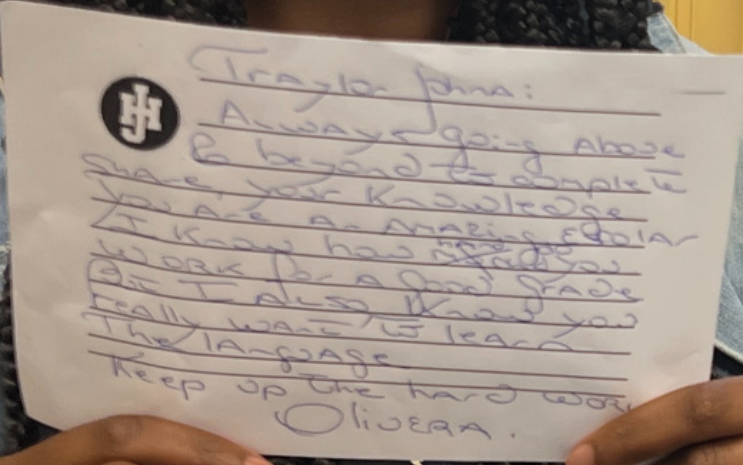 Traylor Johna:
Always going Above
& beyond to complete
share, your Knowledge
You Are An Amazing Scholar
I Know how hard you
work for A Good Grade
But I Also Know you
really want to learn
The lAnguAge
Keep up the hard work
OliverA.
HJ